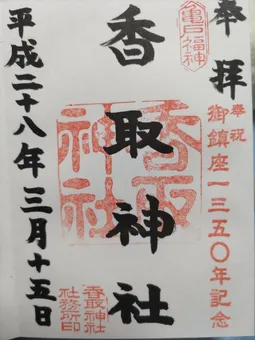 奉拝
亀戸福神
奉祝
御鎮座一三五〇年記念
香取神社
香取神社
平成二十八年三月十五日
香取神社
社務所印